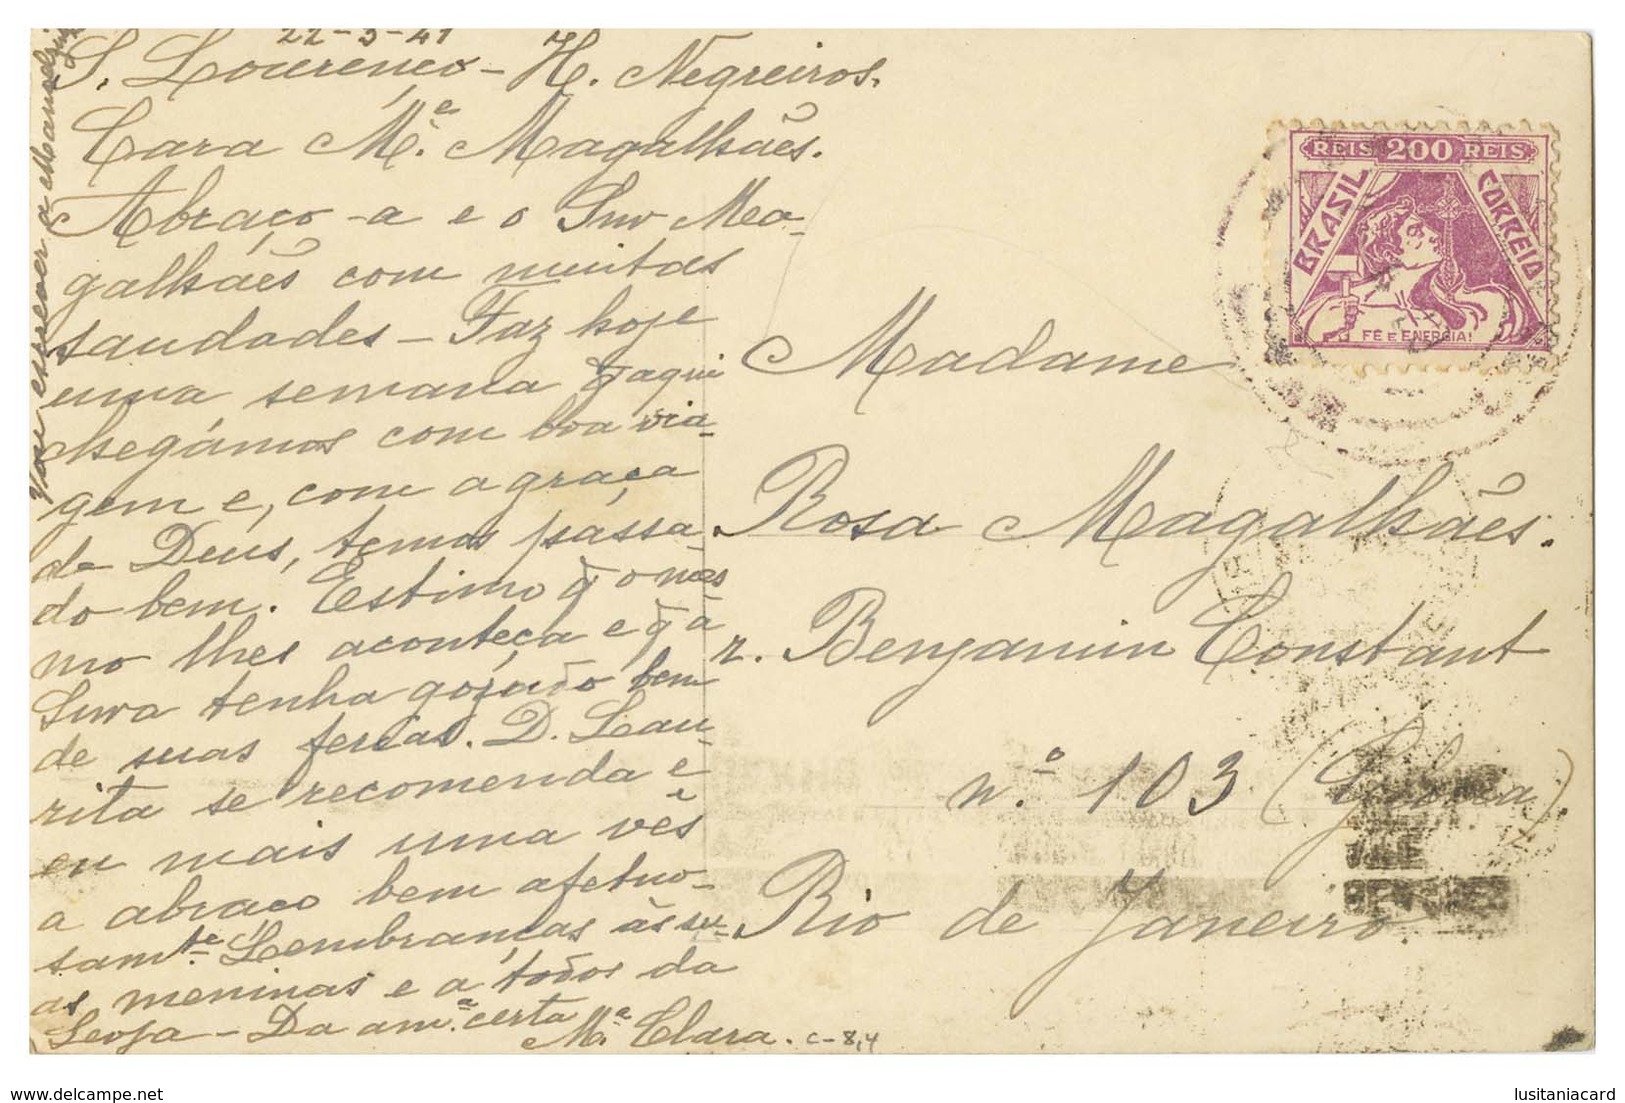 22-3-41
S. Lourenço - H. Negreiros.
Cara Mª. Magalhães.
Abraço-a e o Snr Ma-
galhães com muitas
saudades - Faz hoje
uma semana q̃ aqui
chegámos com boa via-
gem e, com a graça
de Deus, temos passa-
do bem. Estimo q̃ o mes
mo lhes aconteça e q̃ a
Snra tenha gozado bem
de suas ferias. D. Lau-
rita se recomenda e
eu mais uma vês
a abraço bem afetuo-
samte. Lembranças ás su-
as meninas e a todos da
Da amª. certa
Mª. Clara.
c-8,4
Vou escrever a
REIS 200 REIS
BRASIL CORREIO
FÉ E ENERGIA!
Madame
Rosa Magalhães.
r. Benjamin Constant
n.º 103 (Gloria).
Rio de Janeiro.
lusitaniacard.com